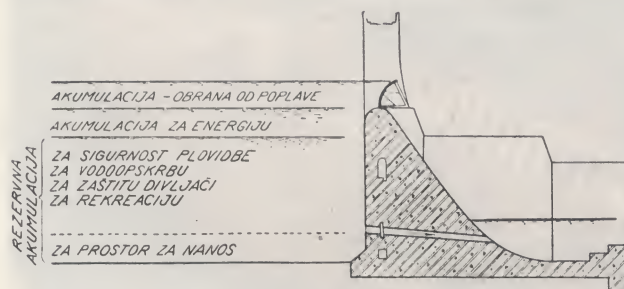 AKUMULACIJA - OBRANA OD POPLAVE
AKUMULACIJA ZA ENERGIJU
REZERVNA
AKUMULACIJA
ZA SIGURNOST PLOVIDBE
ZA VODOOPSKRBU
ZA ZAŠTITU DIVLJAČI
ZA REKREACIJU
ZA PROSTOR ZA NANOS